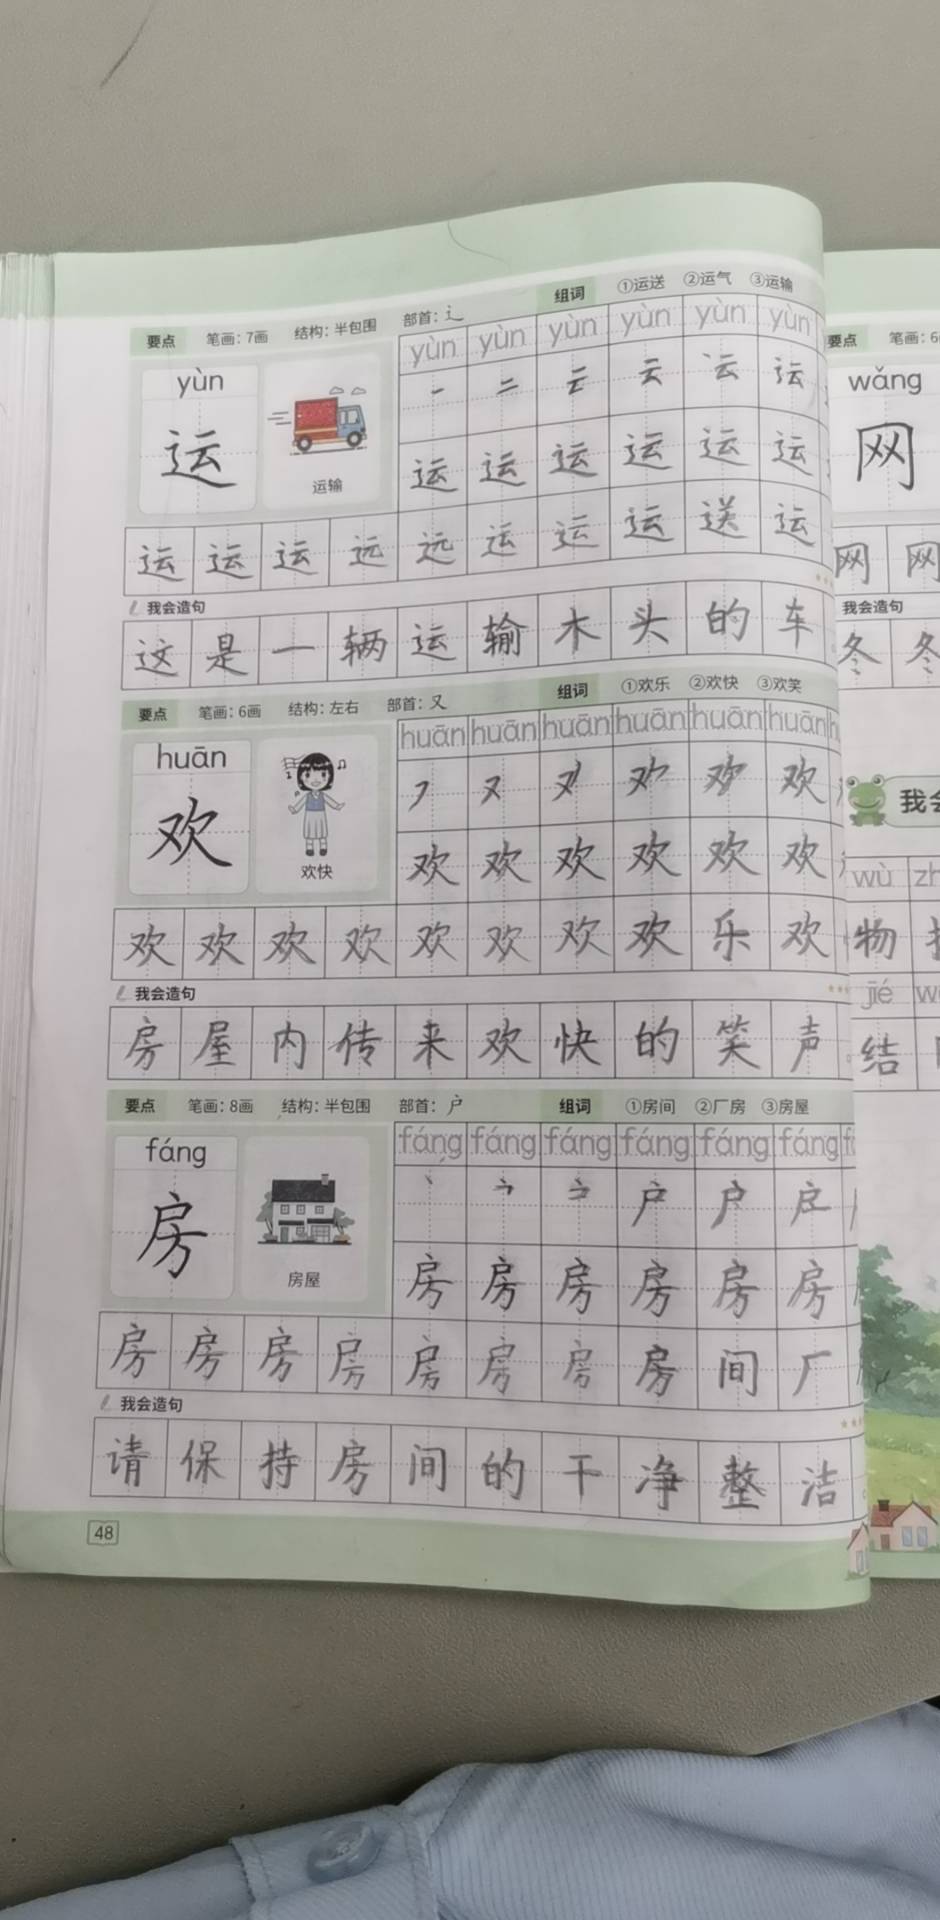 要点 笔画：7画 结构：半包围 部首：辶 组词 ①运送 ②运气 ③运输
yùn yùn yùn yùn yùn yùn yùn
运 运输 一 二 云 云
运 运 运 运 运 运
运 运 运 远 远 运 运 运 送 运
我会造句
这 是 一 辆 运 输 木 头 的 车 。
要点 笔画：6画 结构：左右 部首：又 组词 ①欢乐 ②欢快 ③欢笑
huān huān huān huān huān huān huān
欢 欢快 又 欢
欢 欢 欢 欢 欢 欢
欢 欢 欢 欢 欢 欢 欢 欢 乐 欢
我会造句
房 屋 内 传 来 欢 快 的 笑 声 。
要点 笔画：8画 结构：半包围 部首：户 组词 ①房间 ②厂房 ③房屋
fáng fáng fáng fáng fáng fáng fáng
房 房屋 丶 户
房 房 房 房 房 房
房 房 房 房 房 房 房 房 间 厂
我会造句
请 保 持 房 间 的 干 净 整 洁
48
要点 笔画：6
wǎng
网
网 网
我会造句
冬 冬
我
wù zh
物
jié w
结